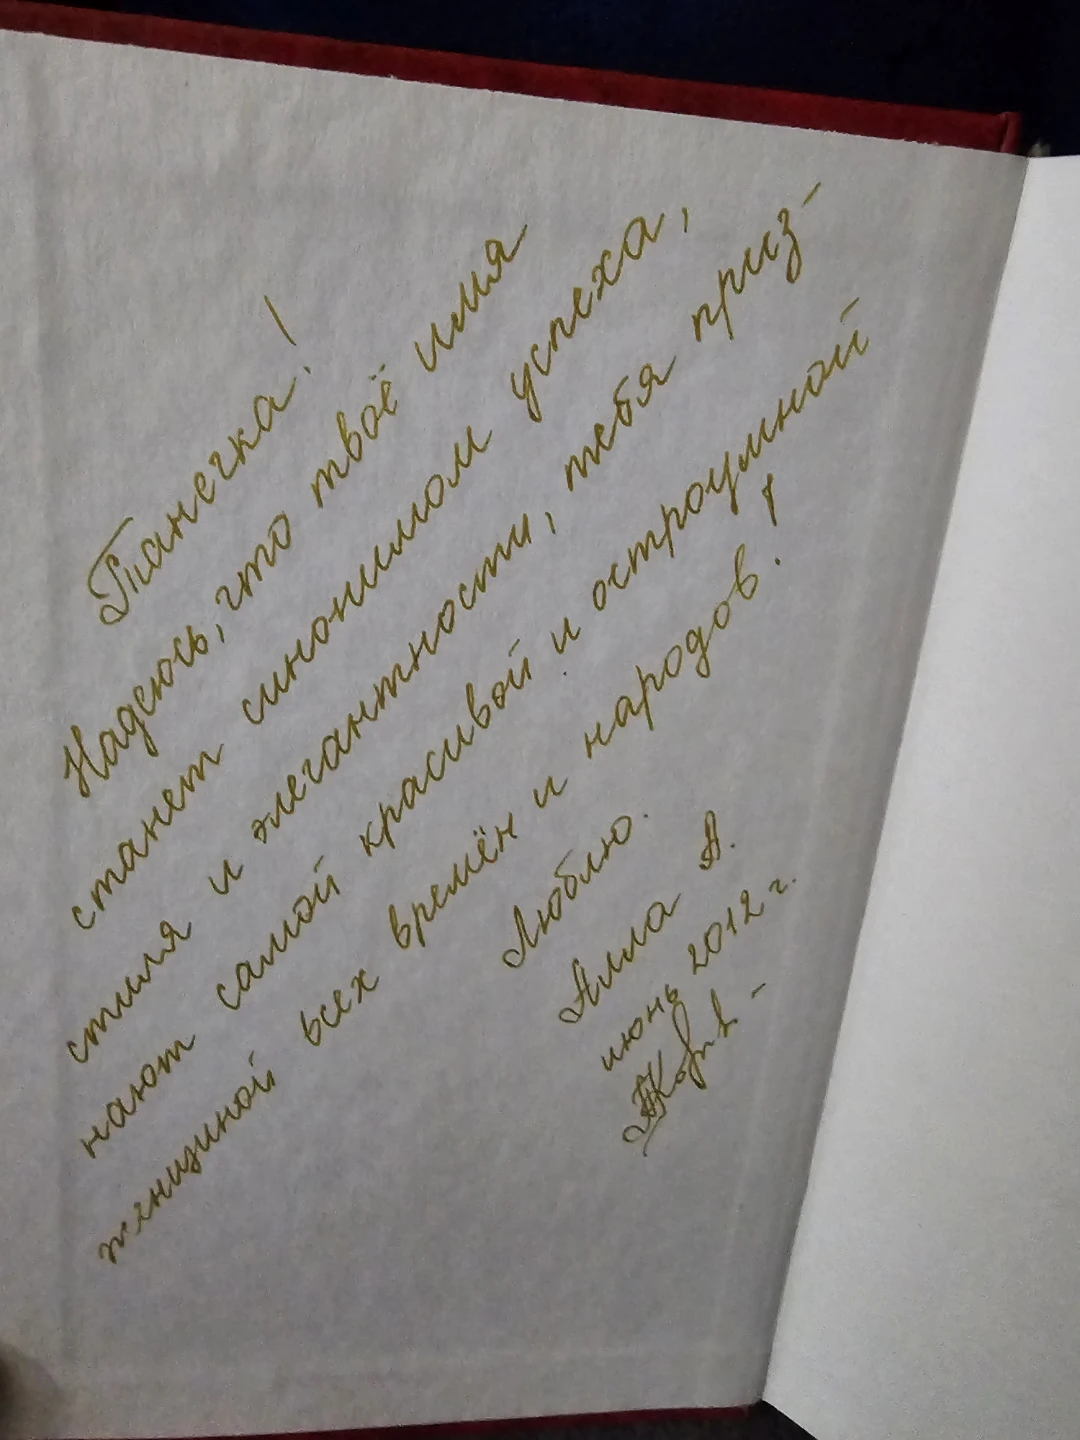 Танечка!
Надеюсь, что твоё имя
станет синонимом успеха,
стиля и элегантности, тебя приз-
нают самой красивой и остроумной
женщиной всех времён и народов!
Люблю.
Алла А.
июнь 2012 г.